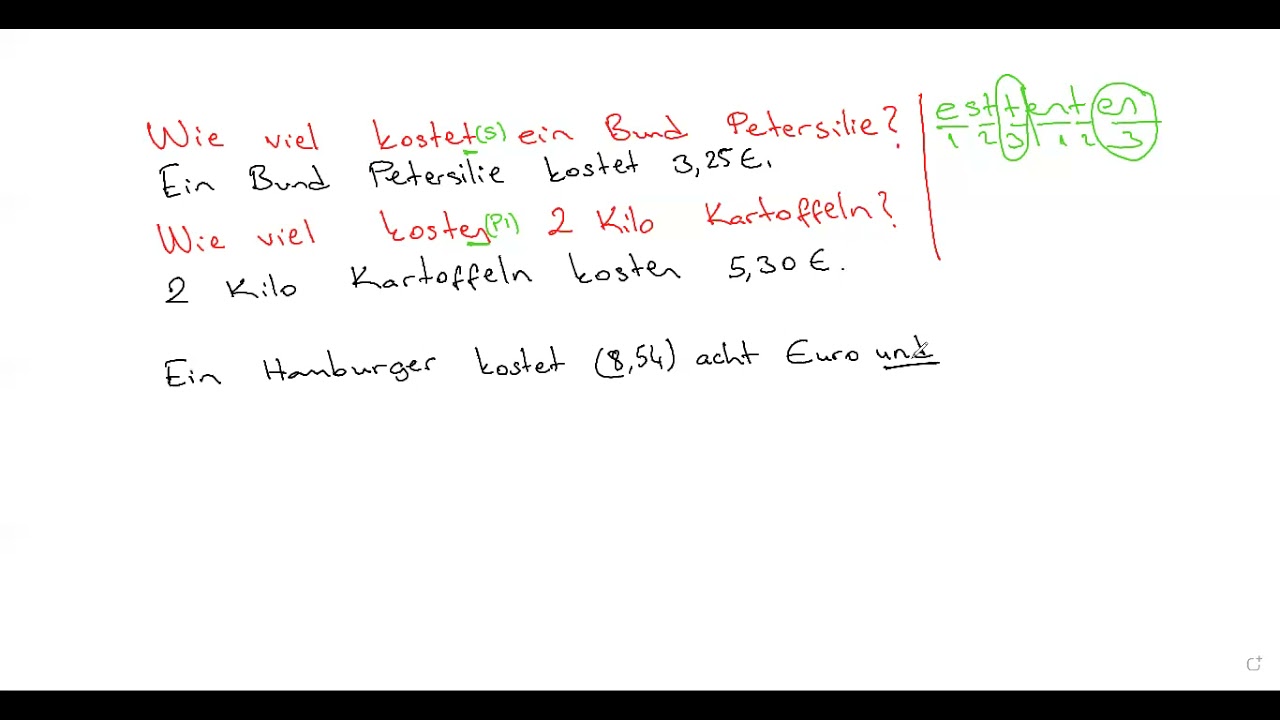 Wie viel kostet(S) ein Bund Petersilie?
Ein Bund Petersilie kostet 3,25€.
Wie viel kosten(Pl) 2 Kilo Kartoffeln?
2 Kilo Kartoffeln kosten 5,30€.
Ein Hamburger kostet (8,54) acht Euro und
esttenten
1 2 3 1 2 3